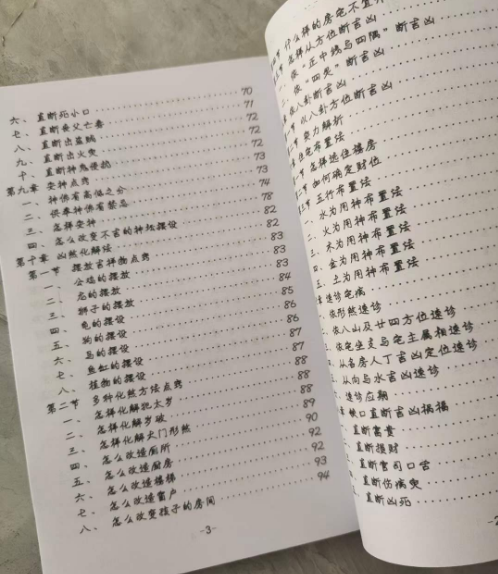 六、直断死小口 70
七、直断丧父亡妻 71
八、直断出盗贼 72
九、直断出火灾 72
十、直断神鬼侵扰 72
第九章 安神点窍 73
一、神佛有高低之分 73
二、供奉神佛有禁忌 74
三、怎样安神 78
四、怎么改变不吉的神坛摆设 82
第十章 凶煞化解法 82
第一节 摆放吉祥物点窍 83
一、公鸡的摆放 83
二、龙的摆放 84
三、狮子的摆放 85
四、龟的摆设 86
五、狗的摆设 86
六、马的摆设 87
七、鱼缸的摆设 87
八、植物的摆设 88
第二节 多种化煞方法点窍 88
一、怎样化解犯太岁 88
二、怎样化解岁破 89
三、怎样化解大门形煞 90
四、怎么改造厕所 92
五、怎么改造厨房 92
六、怎么改造楼梯 93
七、怎么改造窗户 94
八、怎么改变孩子的房间
-3-
什么样的房宅不宜
节 怎样从方位断吉凶
依“正中线与四隅”断吉凶
依“四矢”断吉凶
依八卦断吉凶
以八卦方位断吉凶
实力解析
住宅布置法
节 怎样选住楼房
节 如何确定财位
节 五行布置法
水为用神布置法
二、火为用神布置法
三、木为用神布置法
四、金为用神布置法
五、土为用神布置法
章 速诊宅病
依形煞速诊
依八山及廿四方位速诊
依宅坐支与宅主属相速诊
从各房人丁吉凶定位速诊
从向与水吉凶速诊
速诊应期
章 铁口直断吉凶祸福
直断富贵
直断损财
直断官司口舌
直断伤病灾
直断凶死